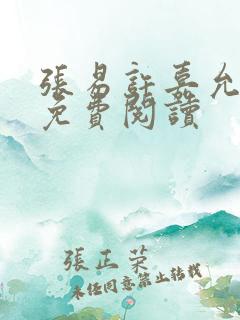 張易許嘉允
免費閱讀
張正榮
未經同意禁止轉載